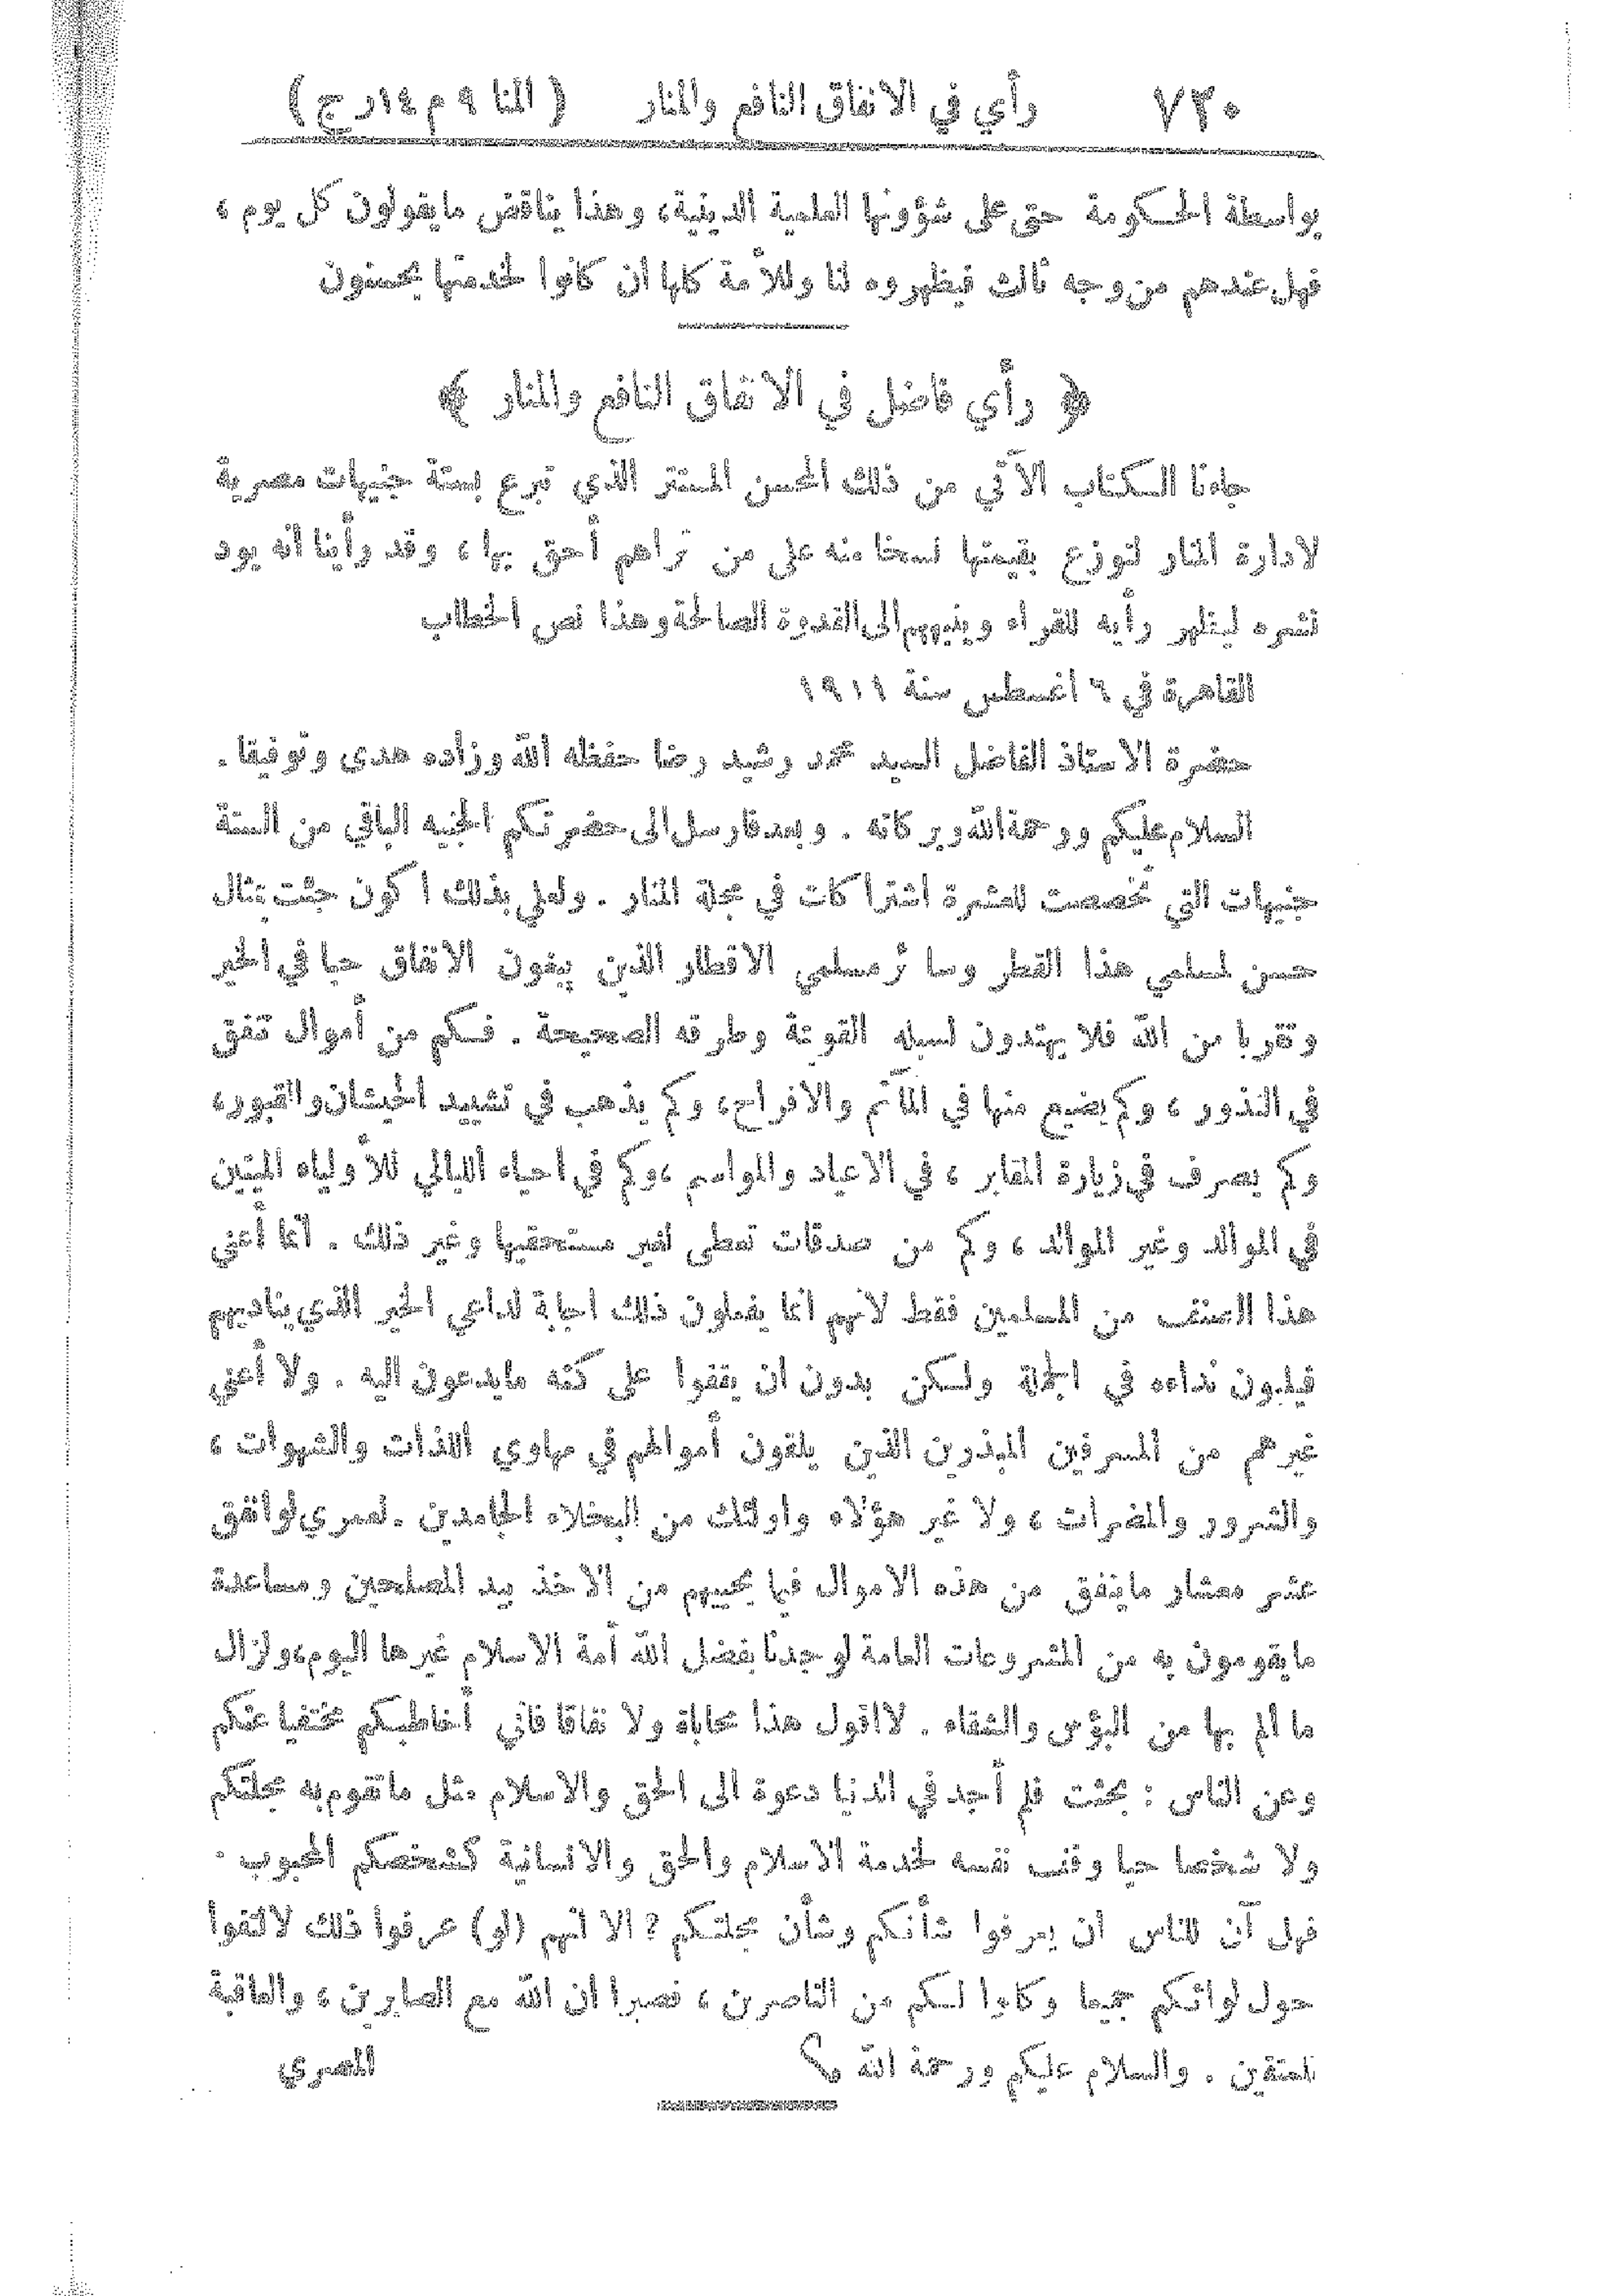 ٧٢٠ رأي في الانفاق النافع والمنار ( المنا ٩ م ١٤رج )
بواسطة الحكومة حق على شؤونها العلمية الدينية، وهذا يناقض ما يقولون كل يوم ،
فهل عندهم من وجه ثالث فيظهروه لنا وللأمة كلها ان كانوا لخدمتها يحسنون
﴿ رأي فاضل في الانفاق النافع والمنار ﴾
جاءنا الكتاب الآتي من ذلك المحسن المستتر الذي تبرع بستة جنيهات مصرية
لادارة المنار لتوزع بقيمتها نسخا منه على من تراهم أحق بها ، وقد رأينا انه يود
نشره ليظهر رأيه للقراء وينبههم الى القدوة الصالحة وهذا نص الخطاب
القاهرة في ٦ اغسطس سنة ١٩١١
حضرة الاستاذ الفاضل السيد محمد رشيد رضا حفظه الله وزاده هدى وتوفيقا .
السلام عليكم ورحمة الله وبركاته . وبعد فارسل الى حضرتكم الجنيه الباقي من الستة
جنيهات التي خصصت للعشرة اشتراكات في مجلة المنار . ولعلي بذلك اكون جئت بمثال
حسن لمسلمي هذا القطر وسائر مسلمي الاقطار الذين يبغون الانفاق حبا في الخير
وتقربا من الله فلا يهتدون لسبله القويمة وطرقه الصحيحة . فكم من أموال تنفق
في النذور ، وكم يضيع منها في المآتم والافراح، وكم يذهب في تشييد الحيشان والقبور،
وكم يصرف في زيارة المقابر ، في الاعياد والمواسم ،وكم في احياء الليالي للأولياء الميتين
في الموالد وغير الموالد ، وكم من صدقات تعطى لغير مستحقيها وغير ذلك . انما أعني
هذا الصنف من المسلمين فقط لانهم انما يفعلون ذلك اجابة لداعي الخير الذي يناديهم
فيلبون نداءه في الجملة ولكن بدون ان يقفوا على كنه ما يدعون اليه . ولا أعني
غيرهم من المسرفين المبذرين الذين يلقون أموالهم في مهاوي اللذات والشهوات ،
والشرور والمضرات ، ولا غير هؤلاء واولئك من البخلاء الجامدين . لعمري لو انفق
عشر معشار ما ينفق من هذه الاموال فيما يحييهم من الاخذ بيد المصلحين ومساعدة
ما يقومون به من المشروعات العامة لوجدنا بفضل الله أمة الاسلام غيرها اليوم،ولزال
ما ألم بها من البؤس والشقاء . لا اقول هذا محاباة ولا نفاقا فاني أخاطبكم مختفيا عنكم
وعن الناس : بحثت فلم أجد في الدنيا دعوة الى الحق والاسلام مثل ما تقوم به مجلتكم
ولا شخصا حيا وقف نفسه لخدمة الاسلام والحق والانسانية كشخصكم المحبوب .
فهل آن للناس ان يعرفوا شأنكم وشأن مجلتكم ? الا انهم (لو) عرفوا ذلك لالتفوا
حول لوائكم جميعا وكانوا لكم من الناصرين ، فصبرا ان الله مع الصابرين ، والعاقبة
للمتقين . والسلام عليكم ورحمة الله المصري